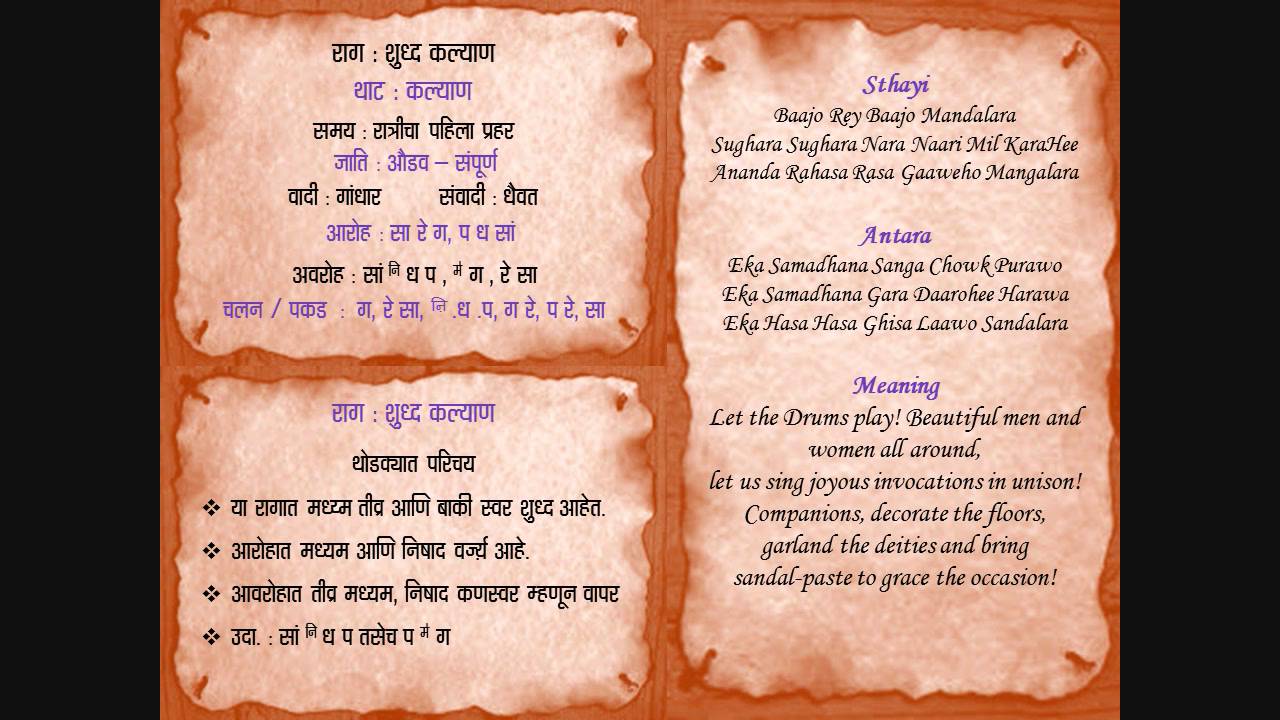 राग : शुध्द कल्याण
थाट : कल्याण
समय : रात्रीचा पहिला प्रहर
जाति : औडव – संपूर्ण
वादी : गांधार संवादी : धैवत
आरोह : सा रे ग, प ध सां
अवरोह : सां नि ध प , म॑ ग , रे सा
चलन / पकड : ग, रे सा, नि .ध .प, ग रे, प रे, सा
राग : शुध्द कल्याण
थोडक्यात परिचय
❖ या रागात मध्य्म तीव्र आणि बाकी स्वर शुध्द आहेत.
❖ आरोहात मध्यम आणि निषाद वर्ज्य़ आहे.
❖ आवरोहात तीव्र मध्यम, निषाद कणस्वर म्हणून वापर
❖ उदा. : सां नि ध प तसेच प म॑ ग
Sthayi
Baajo Rey Baajo Mandalara
Sughara Sughara Nara Naari Mil KaraHee
Ananda Rahasa Rasa Gaaweho Mangalara
Antara
Eka Samadhana Sanga Chowk Purawo
Eka Samadhana Gara Daarohee Harawa
Eka Hasa Hasa Ghisa Laawo Sandalara
Meaning
Let the Drums play! Beautiful men and
women all around,
let us sing joyous invocations in unison!
Companions, decorate the floors,
garland the deities and bring
sandal-paste to grace the occasion!